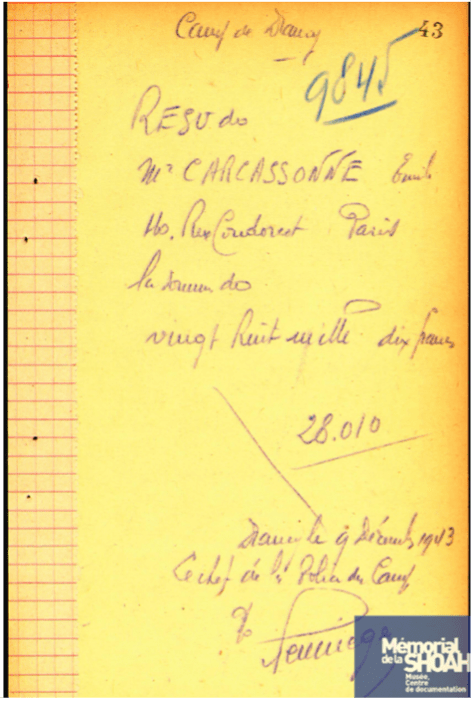 Camp de Drancy
43
9845
RESU de
Mr CARCASSONNE Emile
Rue Condorcet Paris
la somme de
vingt huit mille dix francs
28.010
Drancy le 9 Décemb 1943
Le chef de la Police du Camp
Mémorial
de la SHOAH
Musée,
Centre
de documentation